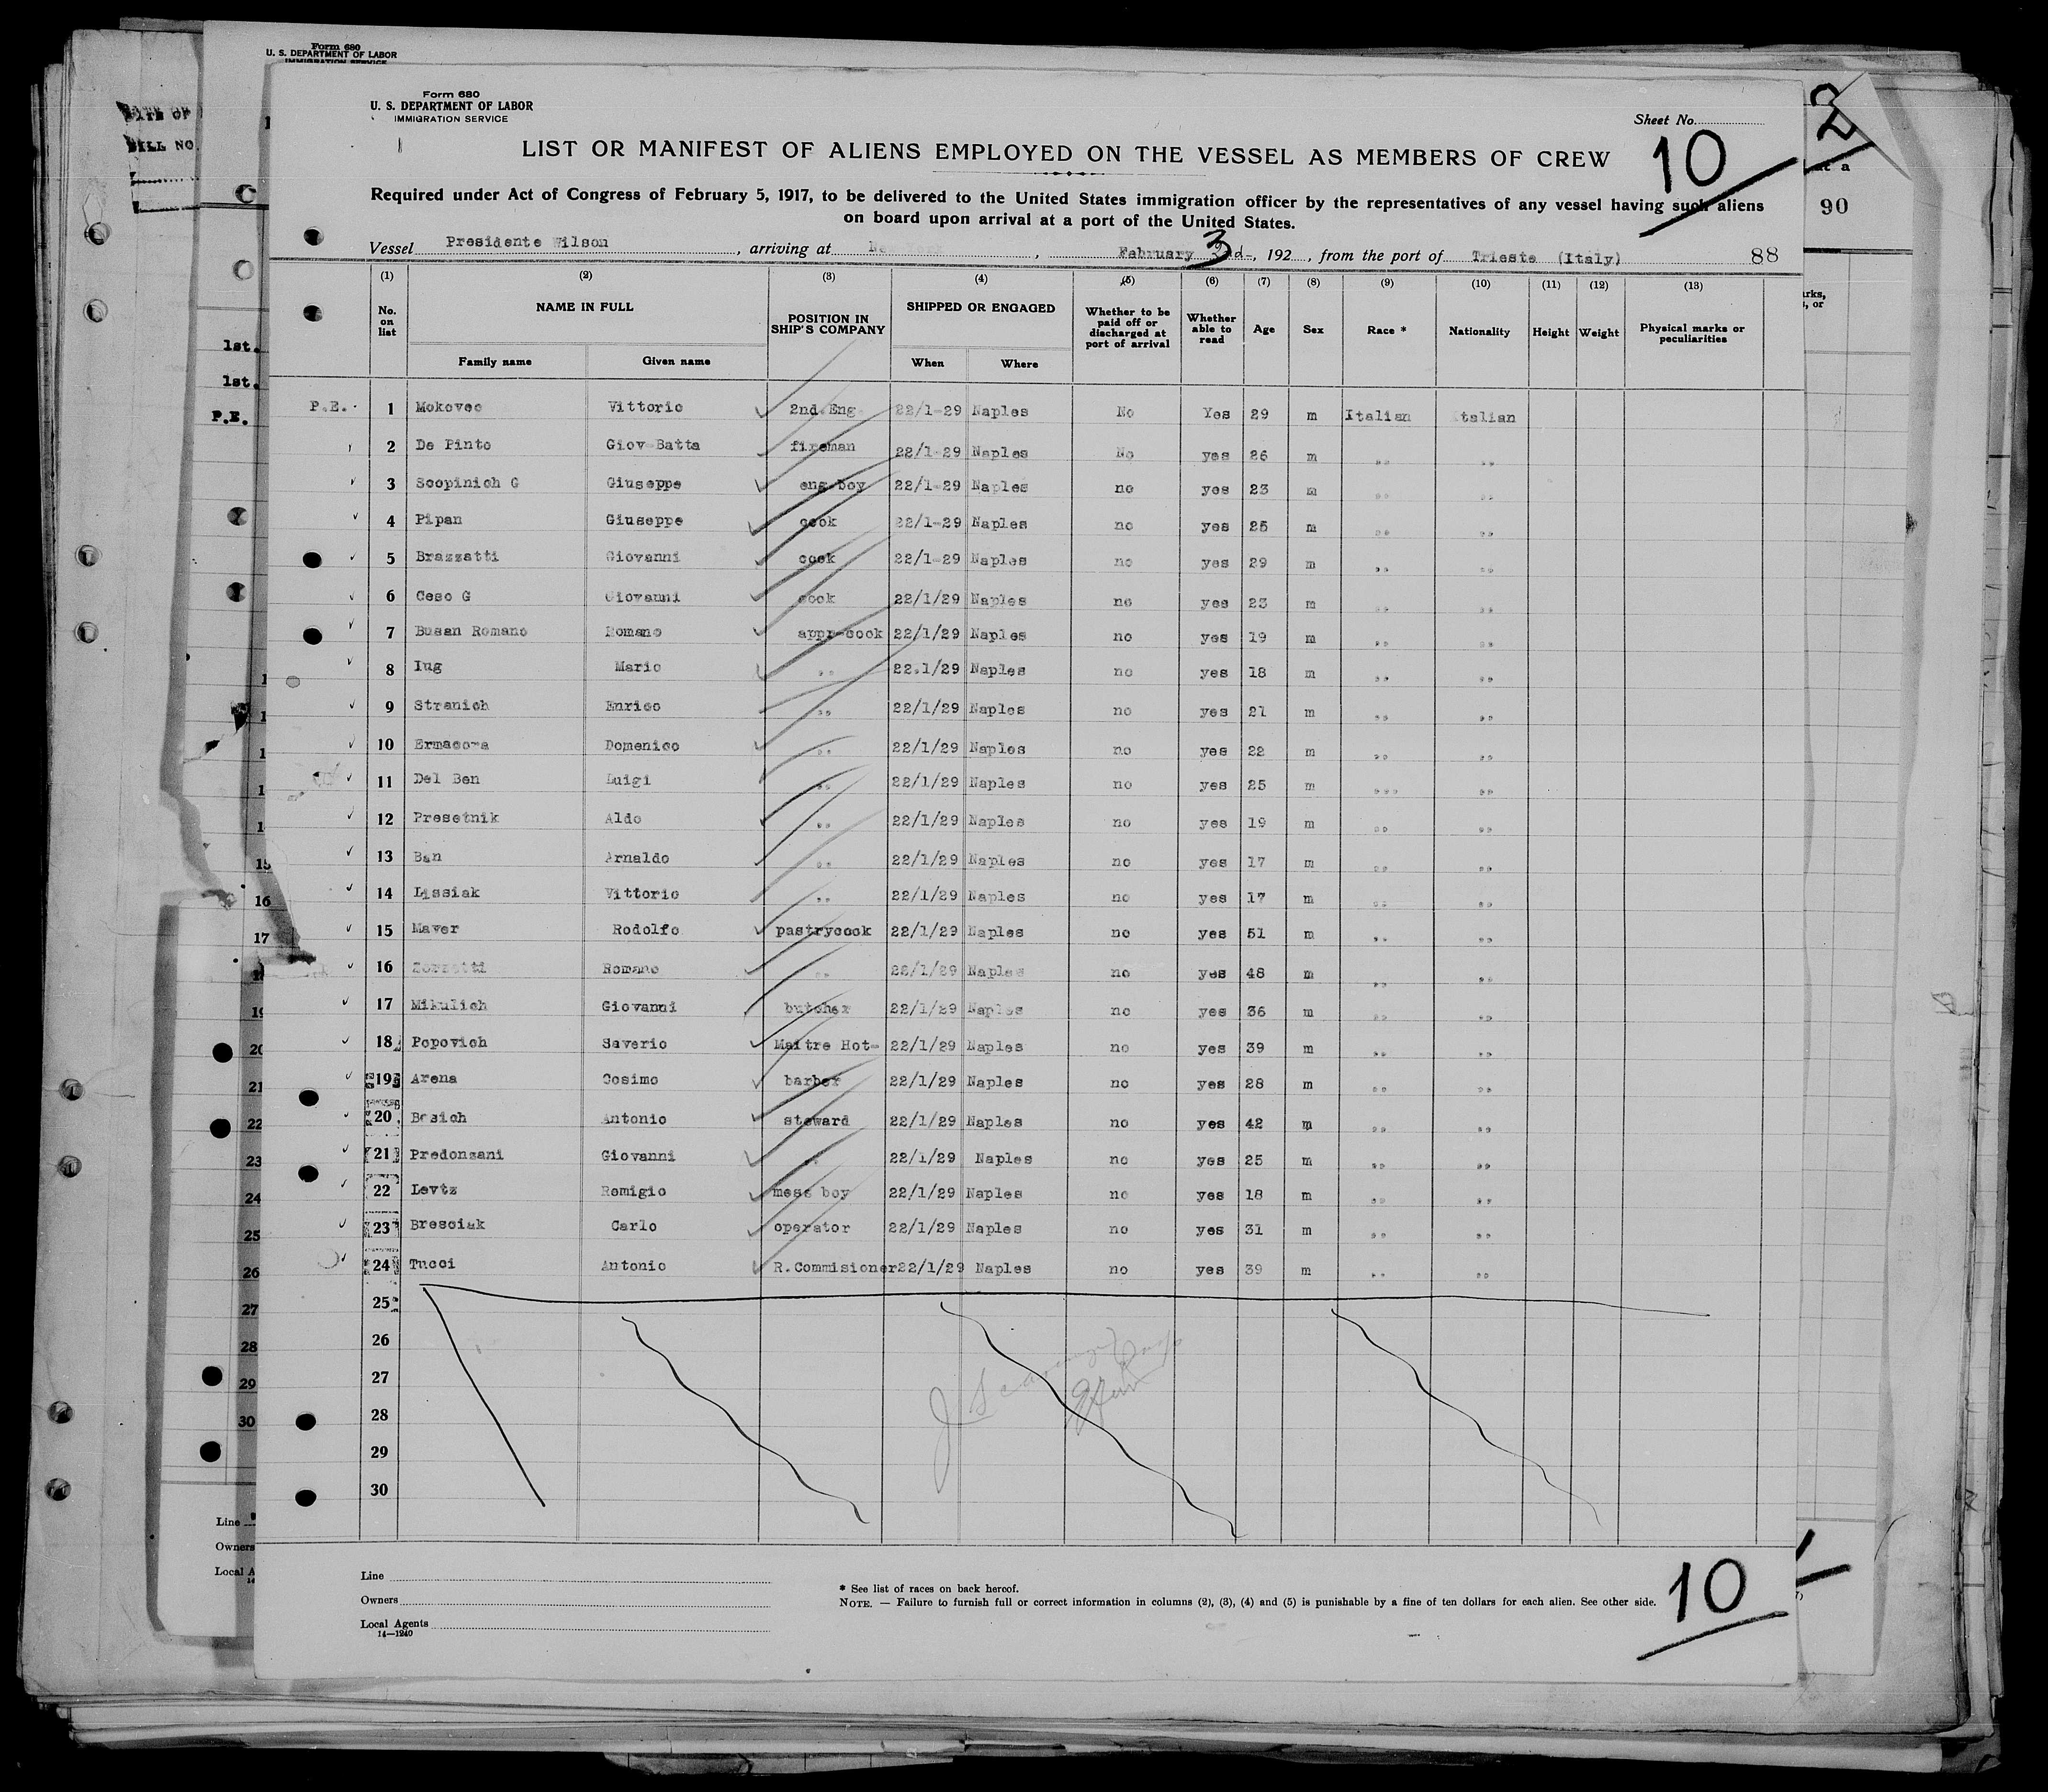 Form 680
U. S. DEPARTMENT OF LABOR
IMMIGRATION SERVICE
Form 680
U. S. DEPARTMENT OF LABOR
IMMIGRATION SERVICE
Sheet No.
10
2
90
LIST OR MANIFEST OF ALIENS EMPLOYED ON THE VESSEL AS MEMBERS OF CREW
Required under Act of Congress of February 5, 1917, to be delivered to the United States immigration officer by the representatives of any vessel having such aliens
on board upon arrival at a port of the United States.
Vessel Presidente Wilson, arriving at , February 3, 192 , from the port of Trieste (Italy) 88
(1) (2) (3) (4) (5) (6) (7) (8) (9) (10) (11) (12) (13)
No. on list NAME IN FULL POSITION IN SHIP'S COMPANY SHIPPED OR ENGAGED Whether to be paid off or discharged at port of arrival Whether able to read Age Sex Race * Nationality Height Weight Physical marks or peculiarities
Family name Given name When Where
P.E. 1 Mokovec Vittorio 2nd.Eng 22/1-29 Naples No Yes 29 m Italian Italian
2 De Pinto Giov-Batta fireman 22/1-29 Naples No yes 26 m ,, ,,
3 Scopinich G Giuseppe eng boy 22/1-29 Naples no yes 23 m ,, ,,
4 Pipan Giuseppe cook 22/1-29 Naples no yes 25 m ,, ,,
5 Brazzatti Giovanni cook 22/1-29 Naples no yes 29 m ,, ,,
6 Ceso G Giovanni cook 22/1/29 Naples no yes 23 m ,, ,,
7 Busan Romano Romano appr-cook 22/1/29 Naples no yes 19 m ,, ,,
8 Iug Mario ,, 22.1/29 Naples no yes 18 m ,, ,,
9 Stranich Enrico ,, 22/1/29 Naples no yes 21 m ,, ,,
10 Ermacora Domenico ,, 22/1/29 Naples no yes 22 m ,, ,,
11 Del Ben Luigi ,, 22/1/29 Naples no yes 25 m ,,, ,,
12 Presetnik Aldo ,, 22/1/29 Naples no yes 19 m ,, ,,
13 Ban Arnaldo ,, 22/1/29 Naples no yes 17 m ,, ,,
14 Lissiak Vittorio ,, 22/1/29 Naples no yes 17 m ,, ,,
15 Maver Rodolfo pastrycook 22/1/29 Naples no yes 51 m ,, ,,
16 Romano ,, 22/1/29 Naples no yes 48 m ,, ,,
17 Mikulich Giovanni butcher 22/1/29 Naples no yes 36 m ,, ,,
18 Popovich Saverio Maitre Hot- 22/1/29 Naples no yes 39 m ,, ,,
19 Arena Cosimo barber 22/1/29 Naples no yes 28 m ,, ,,
20 Bosich Antonio steward 22/1/29 Naples no yes 42 m ,, ,,
21 Predonzani Giovanni ,, 22/1/29 Naples no yes 25 m ,, ,,
22 Levtz Remigio mess boy 22/1/29 Naples no yes 18 m ,, ,,
23 Bresciak Carlo operator 22/1/29 Naples no yes 31 m ,, ,,
24 Tucci Antonio R.Commisioner 22/1/29 Naples no yes 39 m ,, ,,
25
26
27
28
29
30
Line
Owners
Local Agents
14—1240
* See list of races on back hereof.
NOTE. — Failure to furnish full or correct information in columns (2), (3), (4) and (5) is punishable by a fine of ten dollars for each alien. See other side.
10